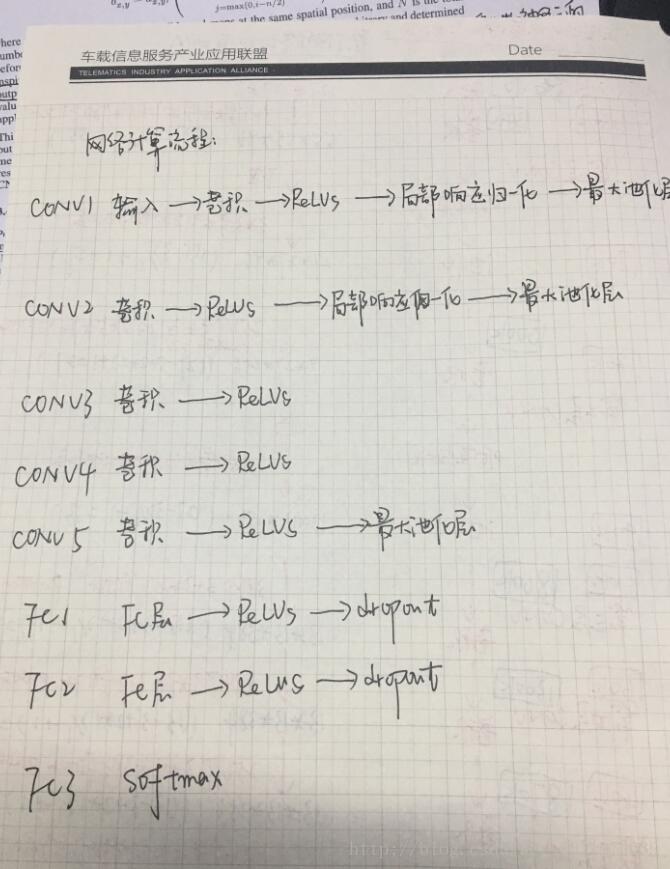 j=max(0,i-n/2)
at the same spatial position, and N is the
and determined
车载信息服务产业应用联盟
Date
TELEMATICS INDUSTRY APPLICATION ALLIANCE
网络计算流程:
CONV1 输入 → 卷积 → ReLUs → 局部响应归一化 → 最大池化层
CONV2 卷积 → ReLUs → 局部响应归一化 → 最大池化层
CONV3 卷积 → ReLUs
CONV4 卷积 → ReLUs
CONV5 卷积 → ReLUs → 最大池化层
FC1 FC层 → ReLUs → dropout
FC2 FC层 → ReLUs → dropout
FC3 softmax
http://blog.cs